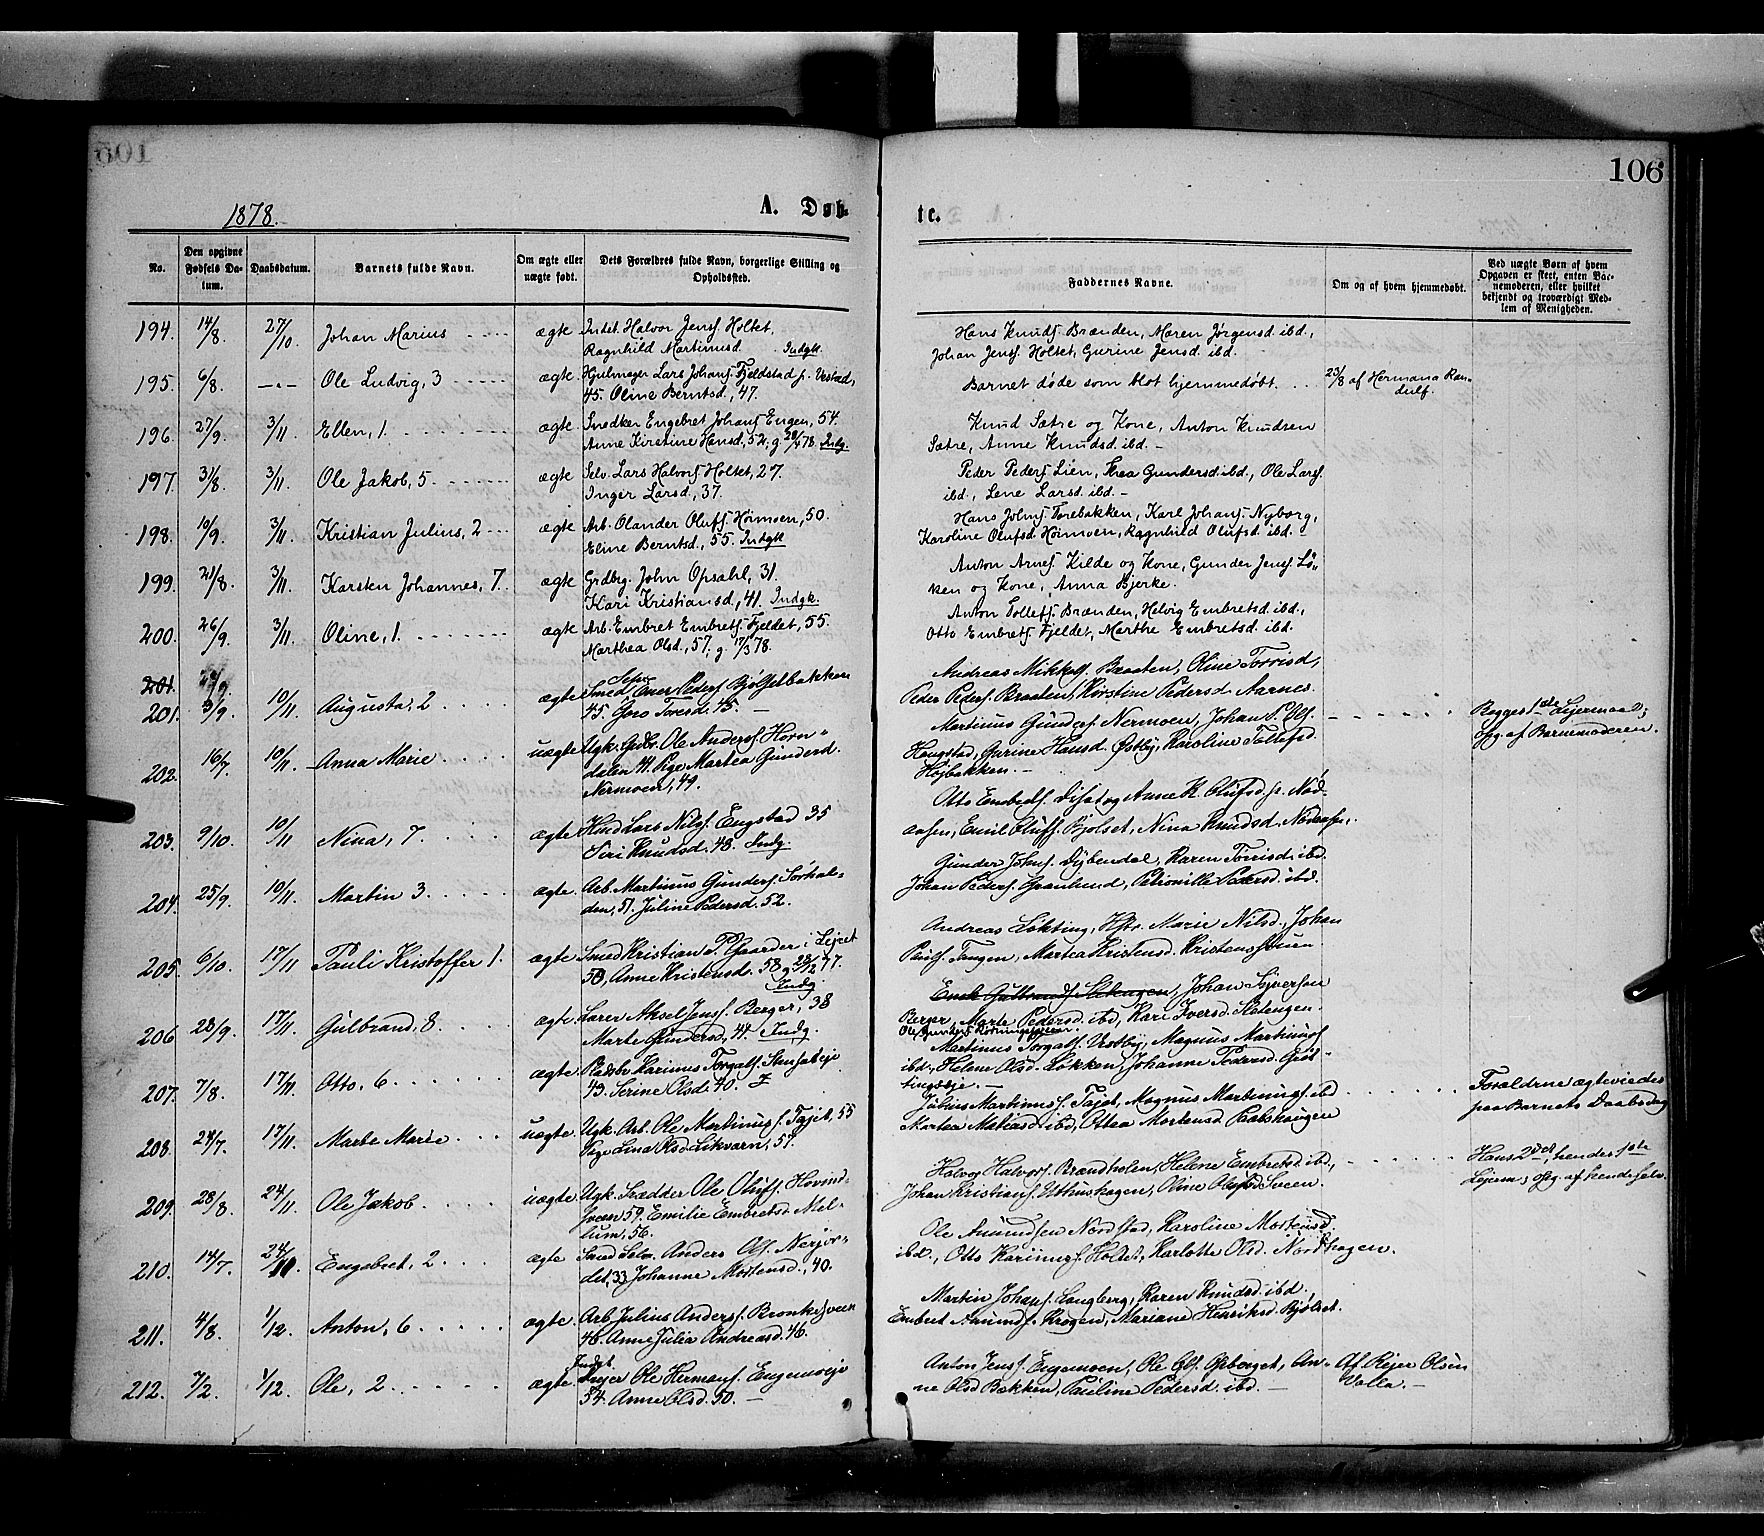 106
1878.
A. Døb-
te.
No.
Den opgivne Fødsels Datum.
Daabsdatum.
Barnets fulde Navn.
Om ægte eller uægte født.
Dets Forældres fulde Navn, borgerlige Stilling og Opholdssted.
Faddernes Navne.
Om og af hvem hjemmedøbt.
Ved uægte Børn af hvem Opgaven er skeet, enten Barnemoderen, eller hvilket bekjendt og troværdigt Medlem af Menigheden.
194. 14/8. 27/10 Johan Marius ægte Indst. Halvor Jens. Holtet,
Ragnhild Martinusd. Indgk.
Hans Knuds. Brænden, Maren Jørgensd. ibd.,
Johan Jens. Holtet, Gurine Jensd. ibd.
195. 6/8. -"- Ole Ludvig, 3 ægte Hjulmager Lars Johans. Fjeldstad p. Vestad,
45. Oline Berntsd., 47.
Barnet døde som blot hjemmedøbt. 23/8 af Hermana Ran-
dulf.
196. 27/9. 3/11. Ellen, 1. ægte Snedker Engebret Johans. Engen, 54.
Anne Kirstine Hansd., 52, g. 20/4 78. Indg.
Knud Sætre og Kone, Anton Knudsen
Sætre, Anne Knudsd. ibd.
197. 31/8. 3/11. Ole Jakob, 5 ægte Selv. Lars Halvors. Holtet, 27.
Inger Larsd., 37.
Peder Peders. Lien, Thea Gundersd. ibd., Ole Lars.
ibd., Lene Larsd. ibd.
198. 10/9. 3/11. Kristian Julius, 2 ægte Arb. Olander Olufs. Hørmoen, 50.
Eline Berntsd., 55. Indgk
Hans Johns. Torebakken, Karl Johans. Nyborg,
Karoline Olufsd. Hørmoen, Ragnhild Olufsd. ibd.
199. 21/8. 3/11. Karsten Johannes, 7. ægte Grdbrg. John Opsahl, 31.
Kari Kristiansd., 41. Indgk.
Anton Arnes. Kilde og Kone, Gunder Jens. Lø-
ken og Kone, Anna Bjerke.
200. 26/9. 3/11. Oline, 1. ægte Arb. Embret Embrets. Fjeldet, 55.
Marthea Olsd., 57, g. 17/3 78.
Anton Tollefs. Brænden, Helvig Embretsd. ibd.,
Otto Embrets. Fjeldet, Marthe Embretsd. ibd.
201. 10/11 Augusta, 2 ægte Smed Peders. Bjølsetbakken
45. Goro Toresd. 45.
Andreas Mikkels. Braaten, Oline Torrisd,
Peder Peders. Braaten, Kirstine Pedersd. Aarnes.
202. 16/7. 10/11. Anna Marie uægte Ugk. Gdbr. Ole Anders. Horn-
dalen 41. Pige Martea Gundersd.
Nermoen, 49.
Martinus Gunders. Nermoen, Johan P. Ols.
Haugstad, Gurine Hansd. Østby, Karoline Tollefsd.
Højbakken.
Begges 1ste Leiermaal;
opg. af Barnemoderen.
203. 9/10. 10/11 Nina, 7. ægte Lars Nils. Engstad 35
Siri Knudsd. 48. Indg.
Otto Embrets. Diset og Anne K. Olufsd. p. Nød-
aasen, Emil Olufs. Bjølset, Nina Knudsd. Nødaasen.
204. 25/9. 10/11. Martin 3. ægte Arb. Martinus Gunders. Sørhal-
den, 51. Juline Pedersd. 52.
Gunder Johns. Dybendal, Karen Torrisd. ibd.
Johan Peders. Granlund, Petronille Pedersd. ibd.
205. 6/10. 17/11 Pauli Kristoffer 1. ægte Smed Kristian P. Gaarder i Lejret
50, Anne Kristensd. 58 g. 28/12 77.
Indg.
Andreas Løkting, Marie Nilsd., Johan
Pauls. Tangen, Martea Kristensd. Kristenshuen.
206 28/9. 17/11. Gulbrand, 8. ægte Lærer Aksel Jens. Berger, 38
Marte Gundersd., 44. Indg.
Emil Gulbrands. Sletengen, Johan Syversen
Berger, Marte Pedersd. ibd, Kari Iversd. Sletengen.
207. 7/8. 17/11 Otto, 6. ægte Karinus Torgals. Stensåseje
43. Serine Olsd. 40. I
Martinus Torgals. Vestby, Magnus Martinus.
ibd., Helene Olsd. Løkken, Johanne Pedersd. Gjøt-
tingseje.
208. 24/7. 17/11. Marte Marie uægte. Ugk. Arb. Ole Martinus. Tajet, 55
Pige Lina Olsd Likvarn, 57.
Julius Martinus. Tajet, Magnus Martinus. ibd
Martea Matiasd. ibd, Ottea Mortensd. Raatshaugen
Forældrene ægteviedes
paa Barnets Daabsdag
209. 28/8. 24/11. Ole Jakob uægte Ugk. Skrædder Ole Olufs. Hovind-
sveen 59. Emilie Embretsd. Mel-
lum, 56.
Halvor Halvors. Brændholen, Helene Embretsd. ibd.,
Johan Kristians. Uthushagen, Oline Olufsd. Sveen.
Hans 2det, hendes 1ste
Lejerm; opg. af hende selv.
210. 14/7. 24/11. Engebret, 2. ægte Smed Selv. Anders Ols. Nerjor-
det, 33 Johanne Mortensd., 40.
Ole Amundsen Nordstad, Karoline Mortensd.
ibd., Otto Karinus. Holtet, Karlotte Olsd. Nordhagen.
211. 4/8. 1/12. Anton, 6 ægte Arb. Julius Anders. Bronkesveen
46. Anne Julia Andreasd. 46.
Martin Johans. Langberg, Karen Knudsd. ibd.,
Embret Amunds. Krogen, Mariane Henriksd. Bjølset.
212. 7/2. 1/12. Ole, 2. ægte Indgk.
Lejer Ole Hermans. Engemoeje
54. Anne Olsd. 50.
Anton Jens. Engemoen, Ole Ols. Ørbæget, An-
ne Olsd Bakken, Pauline Pedersd. ibd.
Af Rejer Olsen
Valla.